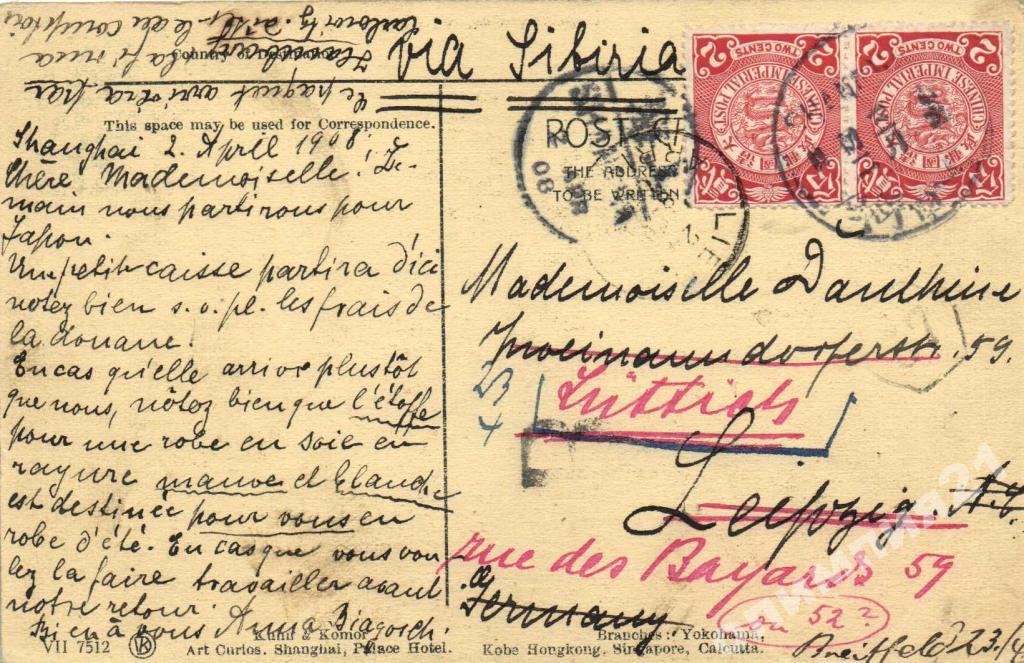 via Sibiria
le paquet arrivera par
Country of Destination
This space may be used for Correspondence.
POST CARD
THE ADDRESS
TO BE WRITTEN
TWO CENTS
CHINESE IMPERIAL POST
大清國郵政
TWO CENTS
CHINESE IMPERIAL POST
大清國郵政
Shanghai 2. April 1908.
Chère Mademoiselle! De-
main nous partirons pour
Japon.
Un petit caisse partira d'ici
notez bien s.v.pl. les frais de
la douane.
En cas qu'elle arrive plustôt
que nous, nôtez bien que l'étoffe
pour une robe en soie en
rayure mauve et blanche
est destinée pour vous en
robe d'été. En cas que vous vou-
lez la faire travailler avant
notre retour.
Bien à vous Anna
Mademoiselle
59.
23
4
Lüttich
Leipzig
rue des Bayards 59
ou 52?
Germany
23/4
VII 7512
Kuhn & Komor
Art Curios. Shanghai, Palace Hotel.
Branches: Yokohama,
Kobe Hongkong, Singapore, Calcutta.